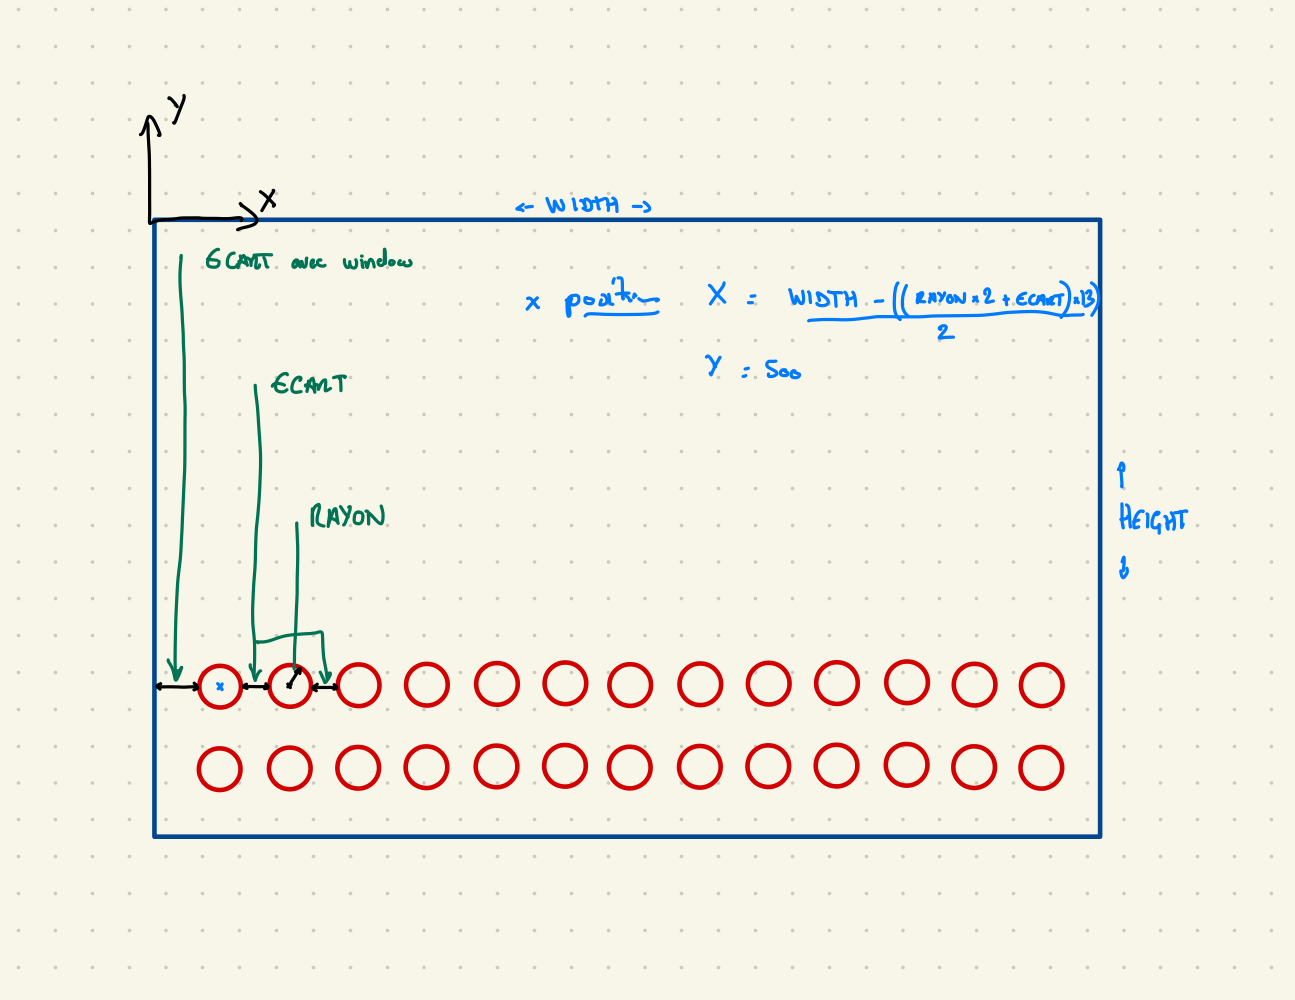 Y
X
← WIDTH →
ECART avec window
x position X = WIDTH - ((RAYON × 2 + ECART) × 13)
2
Y = 500
ECART
RAYON
HEIGHT
x